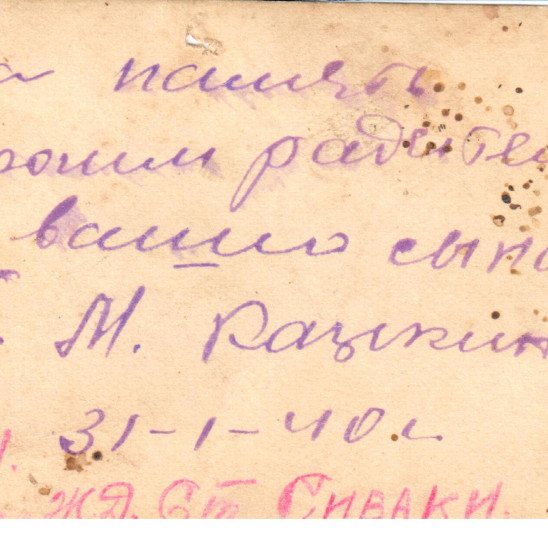 а память
рогим радител
вашно сына
М. Рашкин
31-1-40г.
ЖД. Ст Сиваки.